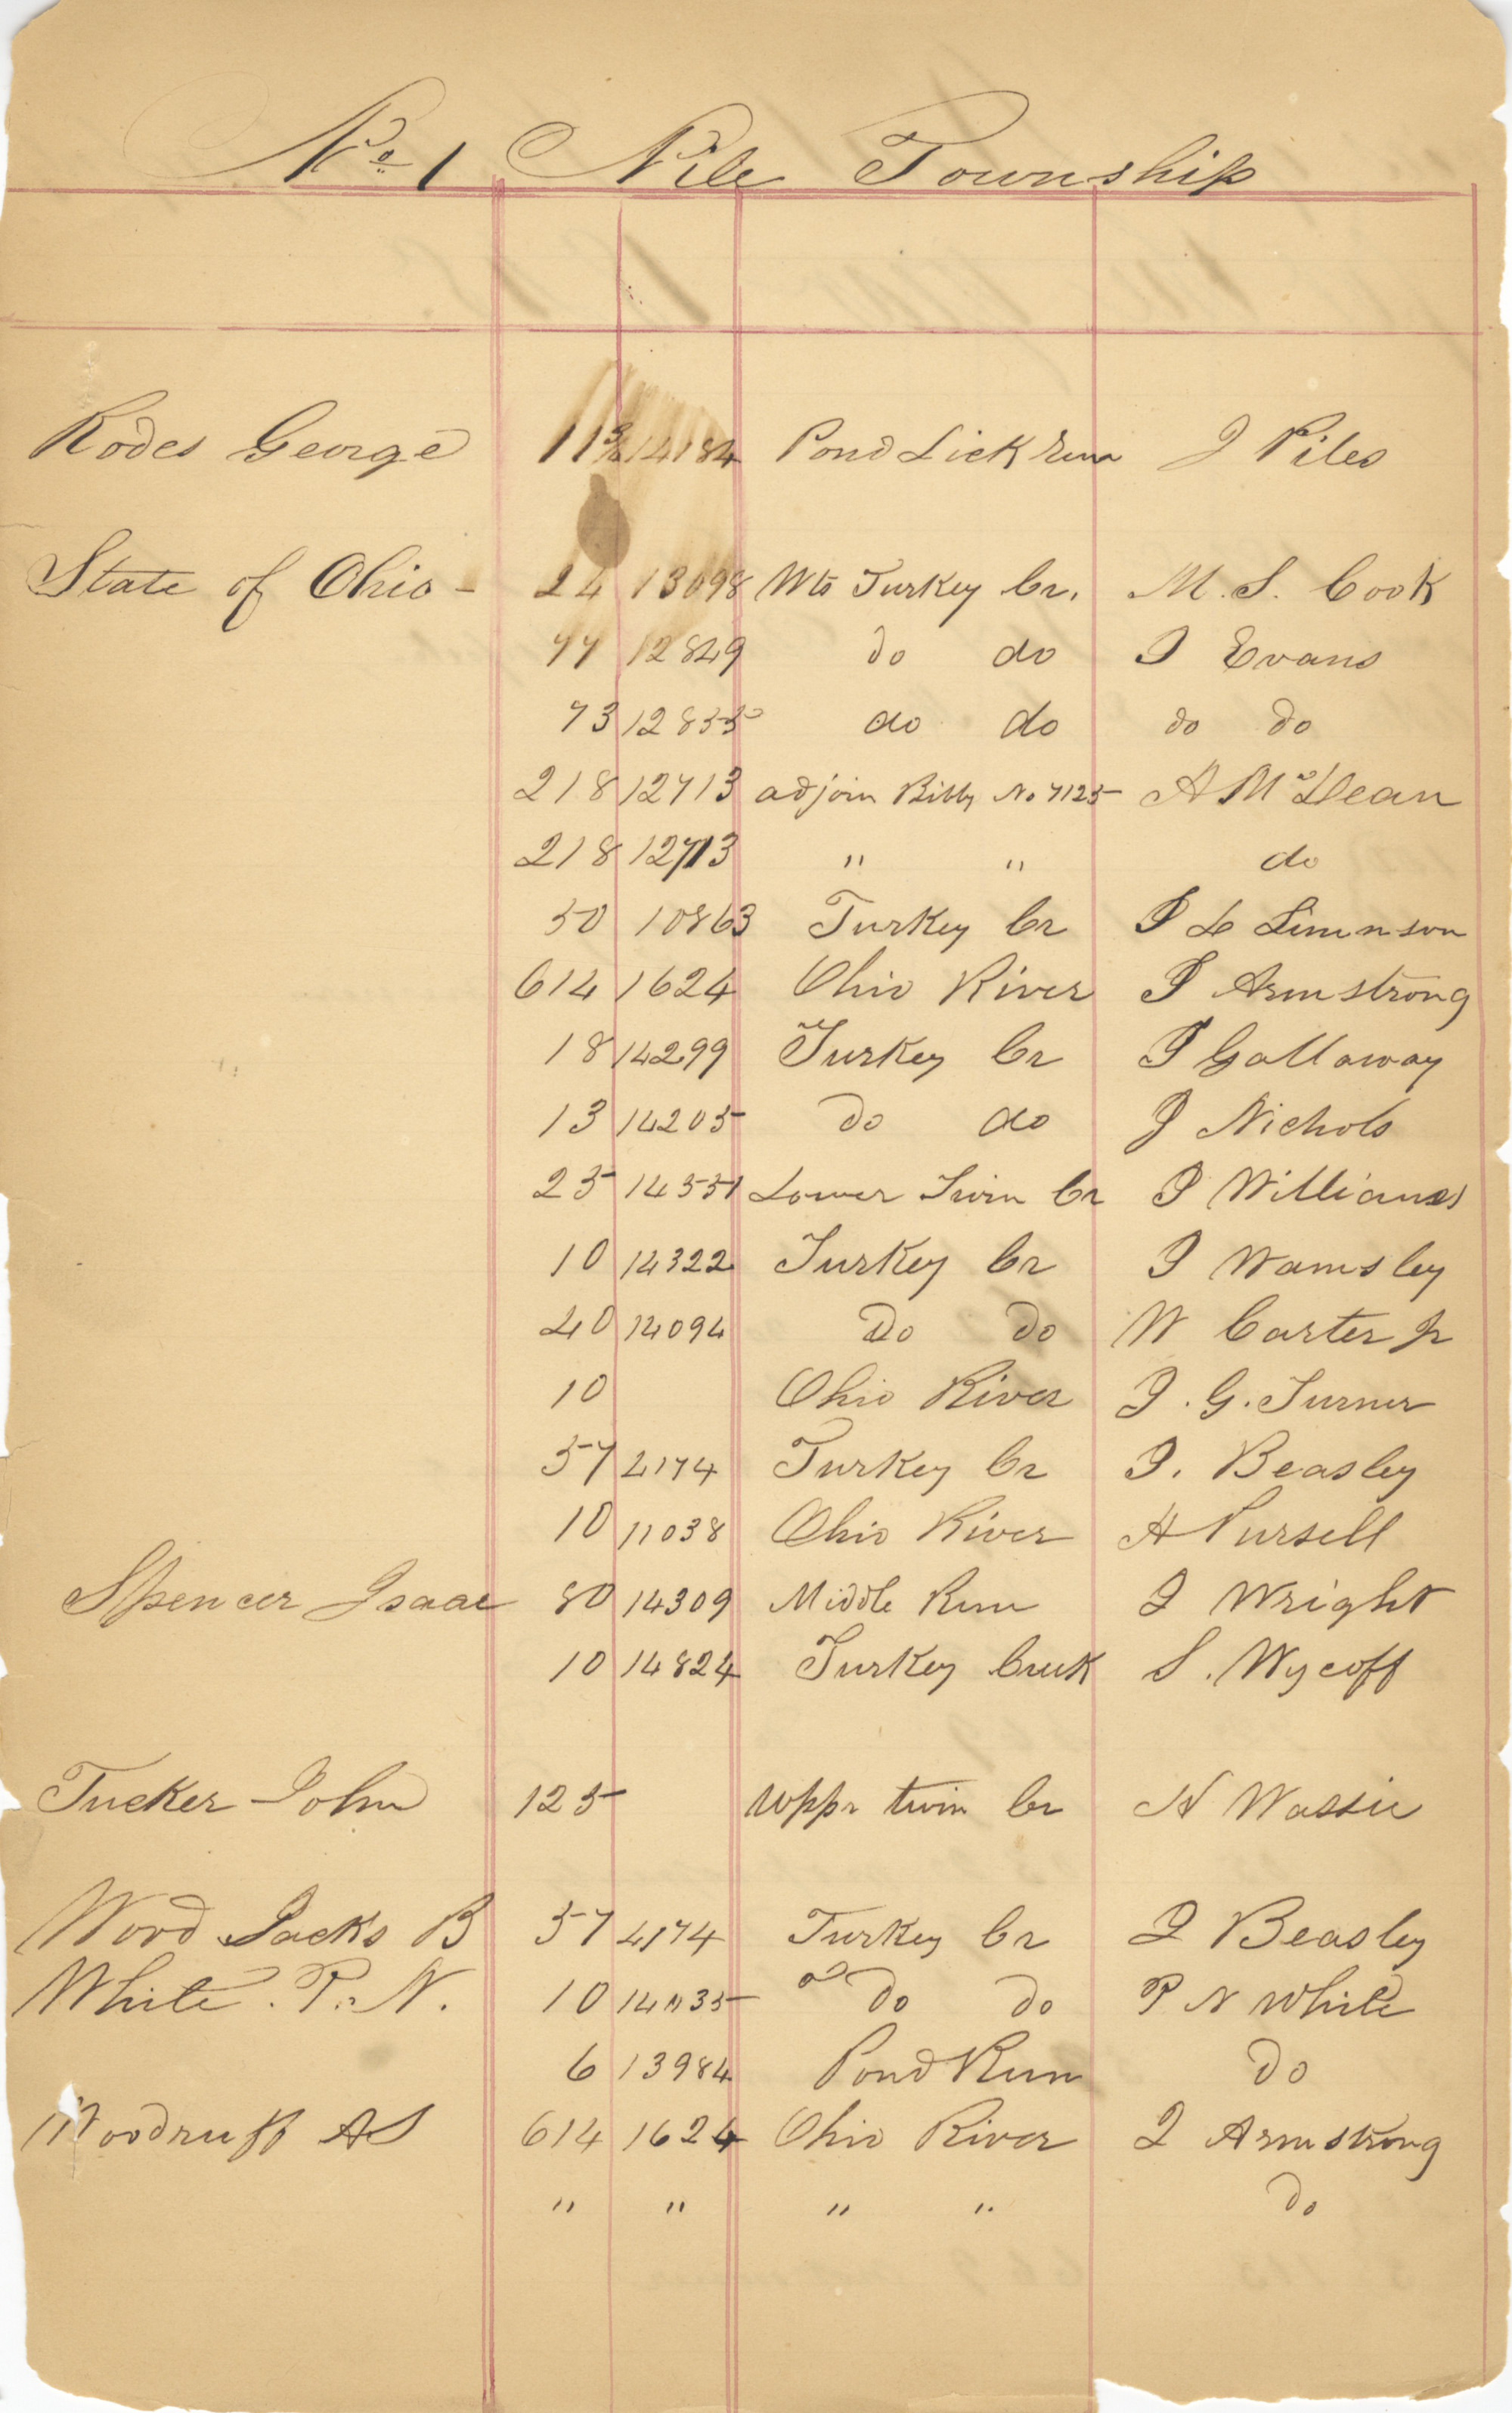 No. 1 Nile Township
Rodes George 11 3/4 14184 Pond Lick Run J Piles
State of Ohio - 24 13098 Wts Turkey Cr. M. S. Cook
77 12849 do do J Evans
73 12835 do do do do
218 12713 adjoin Bibby No 7125 A McDean
218 12713 " " do
50 10863 Turkey Cr J L Simnson
614 1624 Ohio River J Armstrong
18 14299 Turkey Cr J Gallaway
13 14205 do do J Nichols
25 14551 Lower Twin Cr J Williams
10 14322 Turkey Cr J Wamsley
40 14094 Do Do W Carter Jr
10 Ohio River J. G. Turner
57 4174 Turkey Cr J. Beasley
10 11038 Ohio River H Pursell
Spencer Isaac 80 14309 Middle Run J Wright
10 14824 Turkey Creek S. Wycoff
Tucker John 125 Uppr twin Cr N Wassie
Wood Jacks B 57 4174 Turkey Cr J Beasley
White. P. N. 10 14035 Do Do P N White
6 13984 Pond Run Do
Woodruff AS 614 1624 Ohio River J Armstrong
" " " " Do